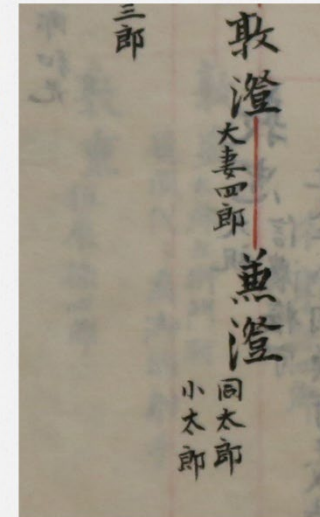 敦澄
大妻四郎
兼澄
同太郎
小太郎
三郎